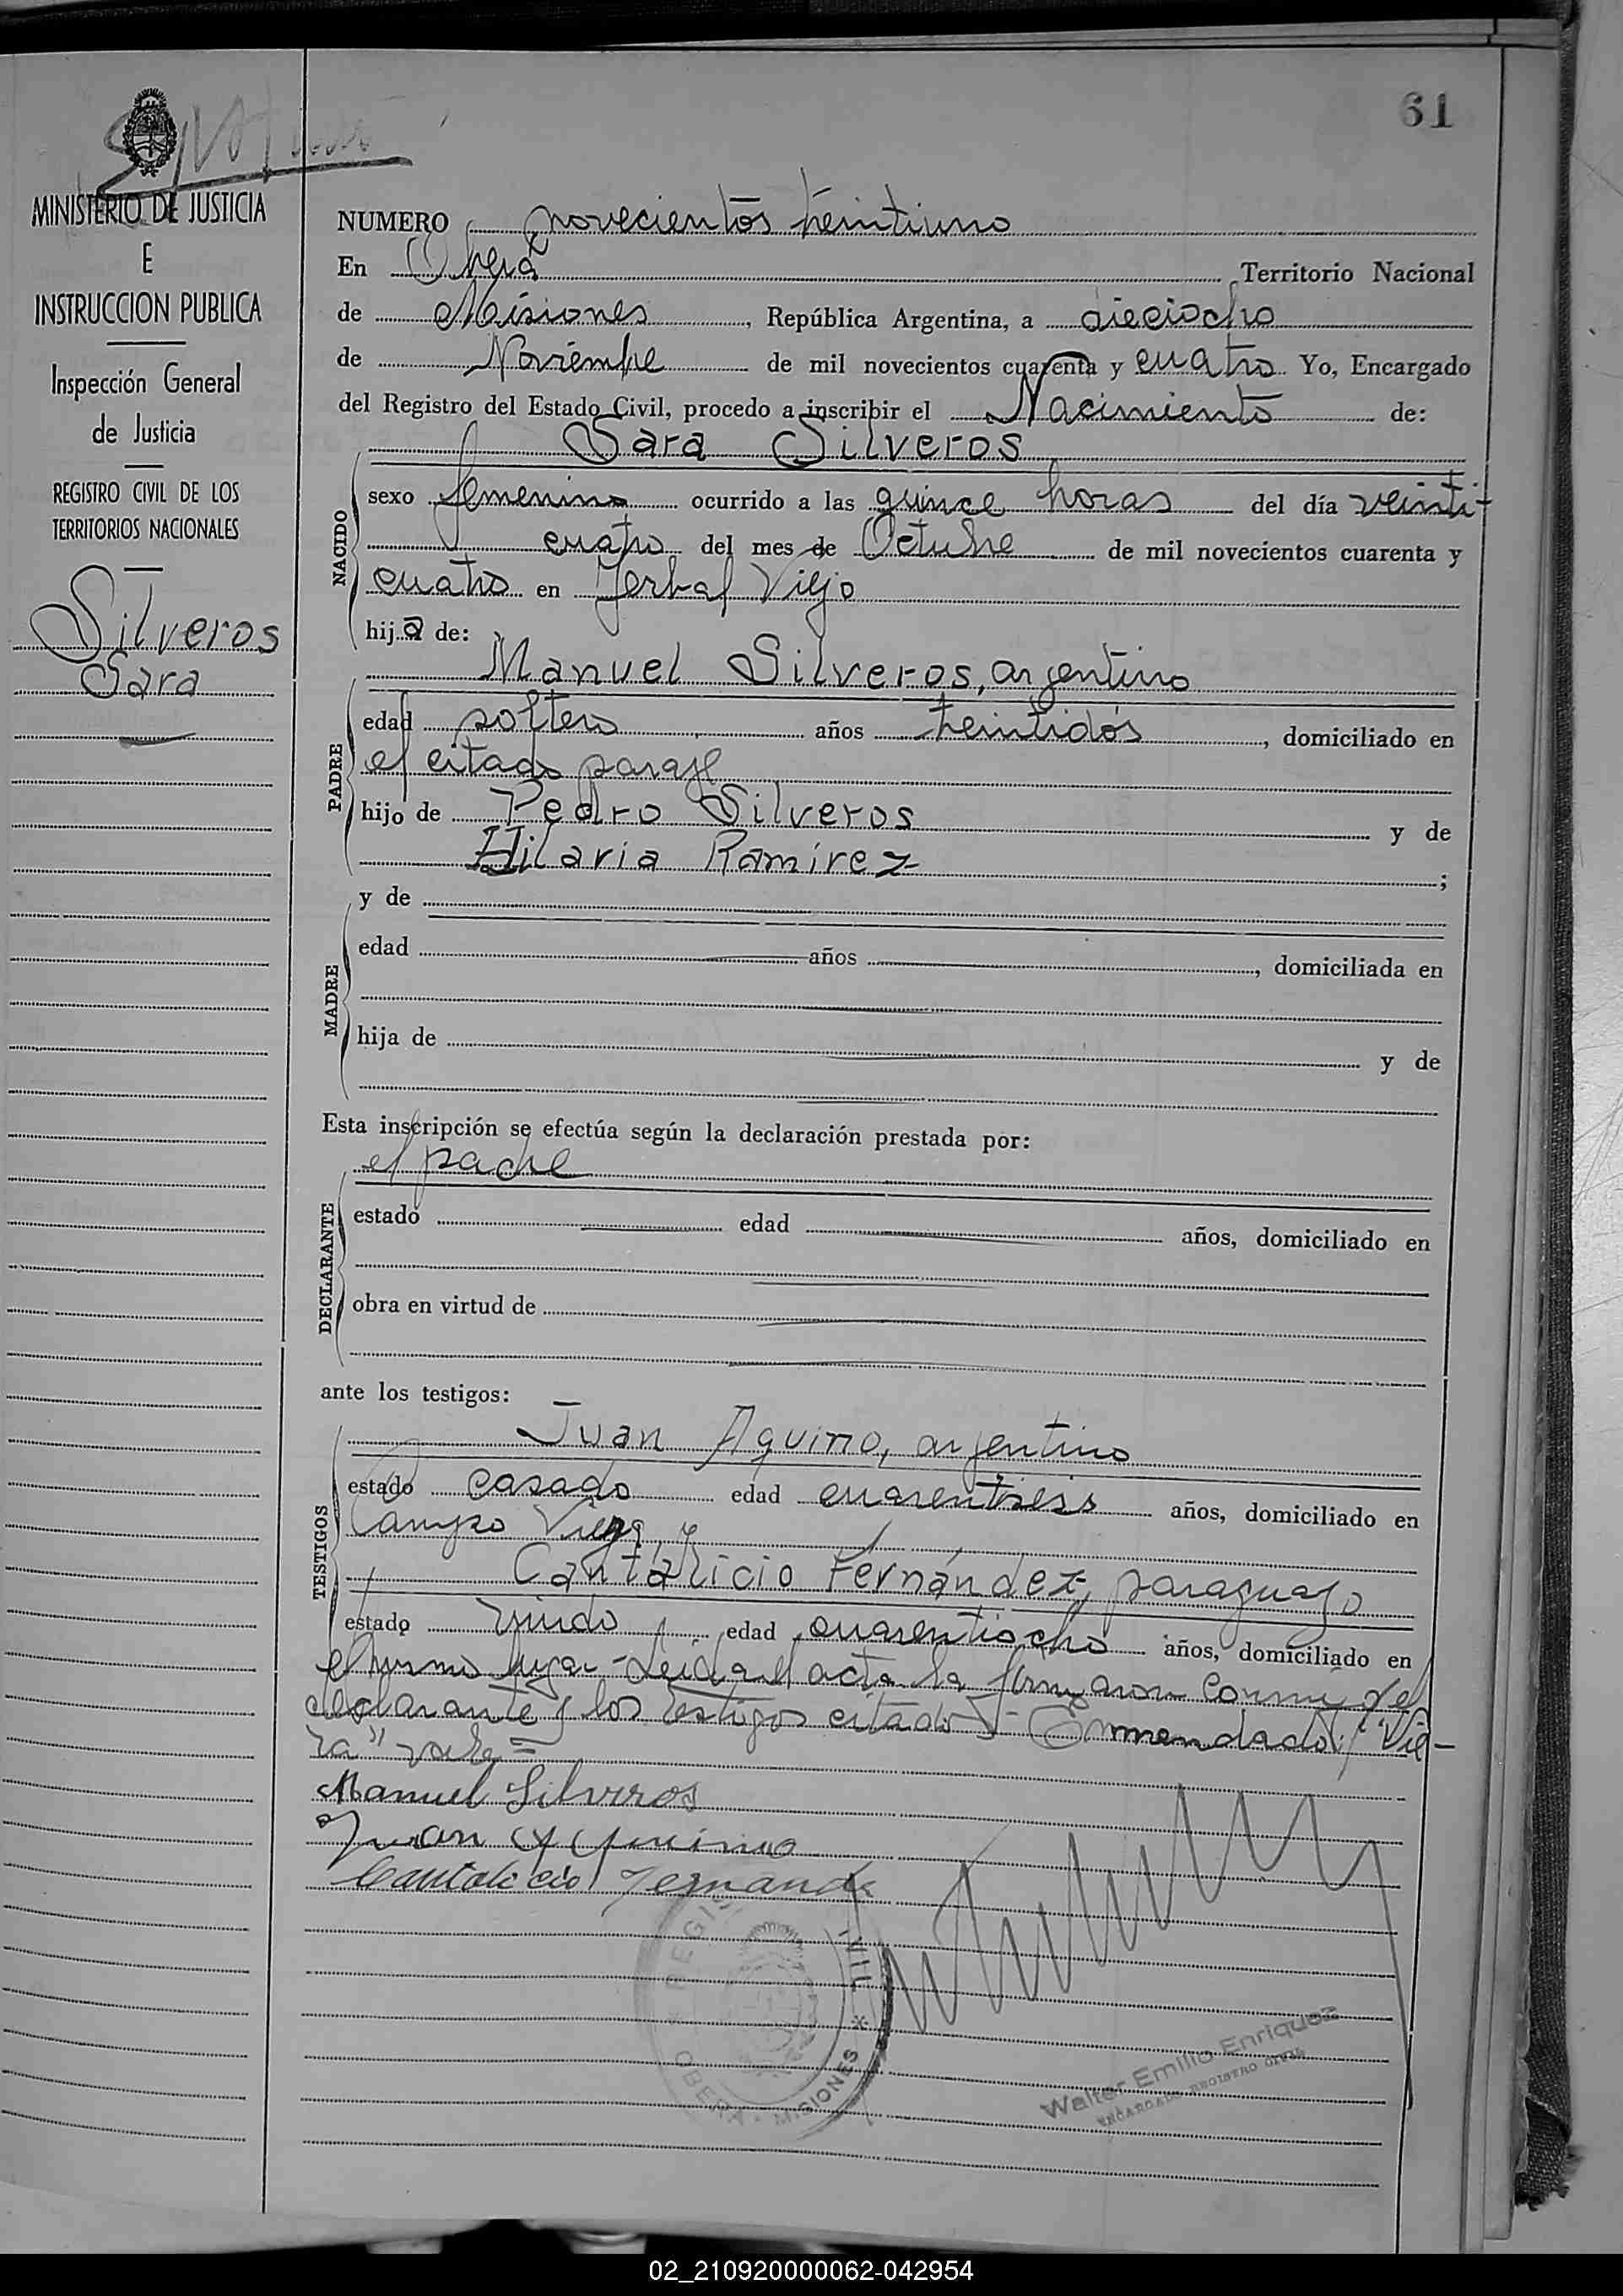 61
MINISTERIO DE JUSTICIA
E
INSTRUCCION PUBLICA
Inspección General
de Justicia
REGISTRO CIVIL DE LOS
TERRITORIOS NACIONALES
Silveros
Sara
NUMERO novecientos treintiuno
En Oberá Territorio Nacional
de Misiones, República Argentina, a dieciocho
de Noviembre de mil novecientos cuarenta y cuatro Yo, Encargado
del Registro del Estado Civil, procedo a inscribir el Nacimiento de:
Sara Silveros
NACIDO
sexo femenino ocurrido a las quince horas del día veinti-
cuatro del mes de Octubre de mil novecientos cuarenta y
cuatro en Yerbal Viejo
hija de:
PADRE
Manuel Silveros, argentino
edad soltero años treintidós, domiciliado en
el citado paraje
hijo de Pedro Silveros y de
Hilaria Ramírez;
MADRE
y de
edad años, domiciliada en
hija de y de
Esta inscripción se efectúa según la declaración prestada por:
el padre
DECLARANTE
estado edad años, domiciliado en
obra en virtud de
ante los testigos:
TESTIGOS
Juan Aquino, argentino
estado casado edad cuarentiseis años, domiciliado en
Campo Viera y
Cantalicio Fernández, paraguayo
estado viudo edad cuarentiocho años, domiciliado en
el mismo lugar - Leida el acta la firmaron conmigo el
declarante y los testigos citados - Enmendado: "Vie-
ra" vale =
Manuel Silveros
Juan Aquino
Cantalicio Fernande
REGISTRO CIVIL * OBERA - MISIONES *
Walter Emilio Enriquez
ENCARGADO REGISTRO CIVIL
02_210920000062-042954